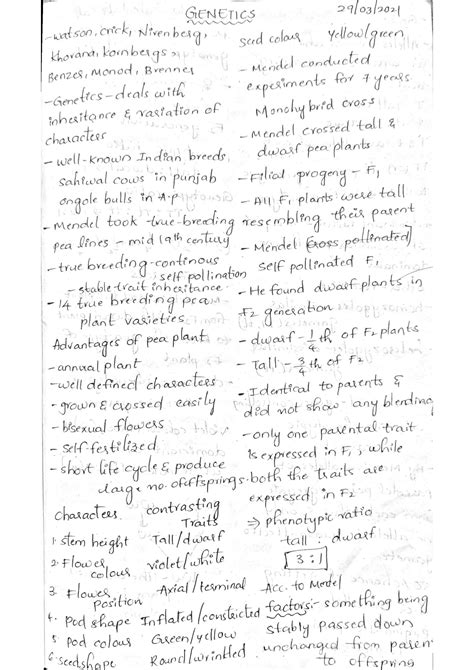 GENETICS
29/03/2021
-watson, crick, Nirenberg,
khorana, kornbergs
Benzer, Monod, Brenner
-Genetics - deals with
inheritance & variation of
characters
- well-known Indian breeds,
sahiwal cows in punjab
ongole bulls in A.P
- Mendel took true-breeding
pea lines - mid 19th century
- true breeding-continous
self pollination
- stable-trait inheritance
- 14 true breeding pea
plant varieties
Advantages of pea plant
- annual plant
- well defined characters
- grown & crossed easily
- bisexual flowers
- self-fertilized
- short life cycle & produce
large no. offfsprings.
Characters contrasting
Traits
1. stem height Tall/dwarf
2. Flower
colous violet/white
3. Flower
position Axial/terminal
4. Pod shape Inflated/constricted
5. Pod colous Green/yellow
6. seedshape Round/wrintled
seed colous yellow/green
- Mendel conducted
experiments for 7 years
Monohybrid cross
- Mendel crossed tall &
dwarf pea plants
- Filial progeny - F1
- All F1 plants were tall
resembling their parent
- Mendel [cross pollinated]
self pollinated F1
- He found dwarf plants in
F2 generation
- dwarf - 1/4 th of F2 plants
- Tall - 3/4 th of F2
- Identical to parents &
did not show any blending
- only one parental trait
is expressed in F1; while
both the traits are
expressed in F2
⇒ phenotypic ratio
tall : dwarf
3:1
Acc. to Medel
factors:- something being
stably passed down
unchanged from paren
to offspring